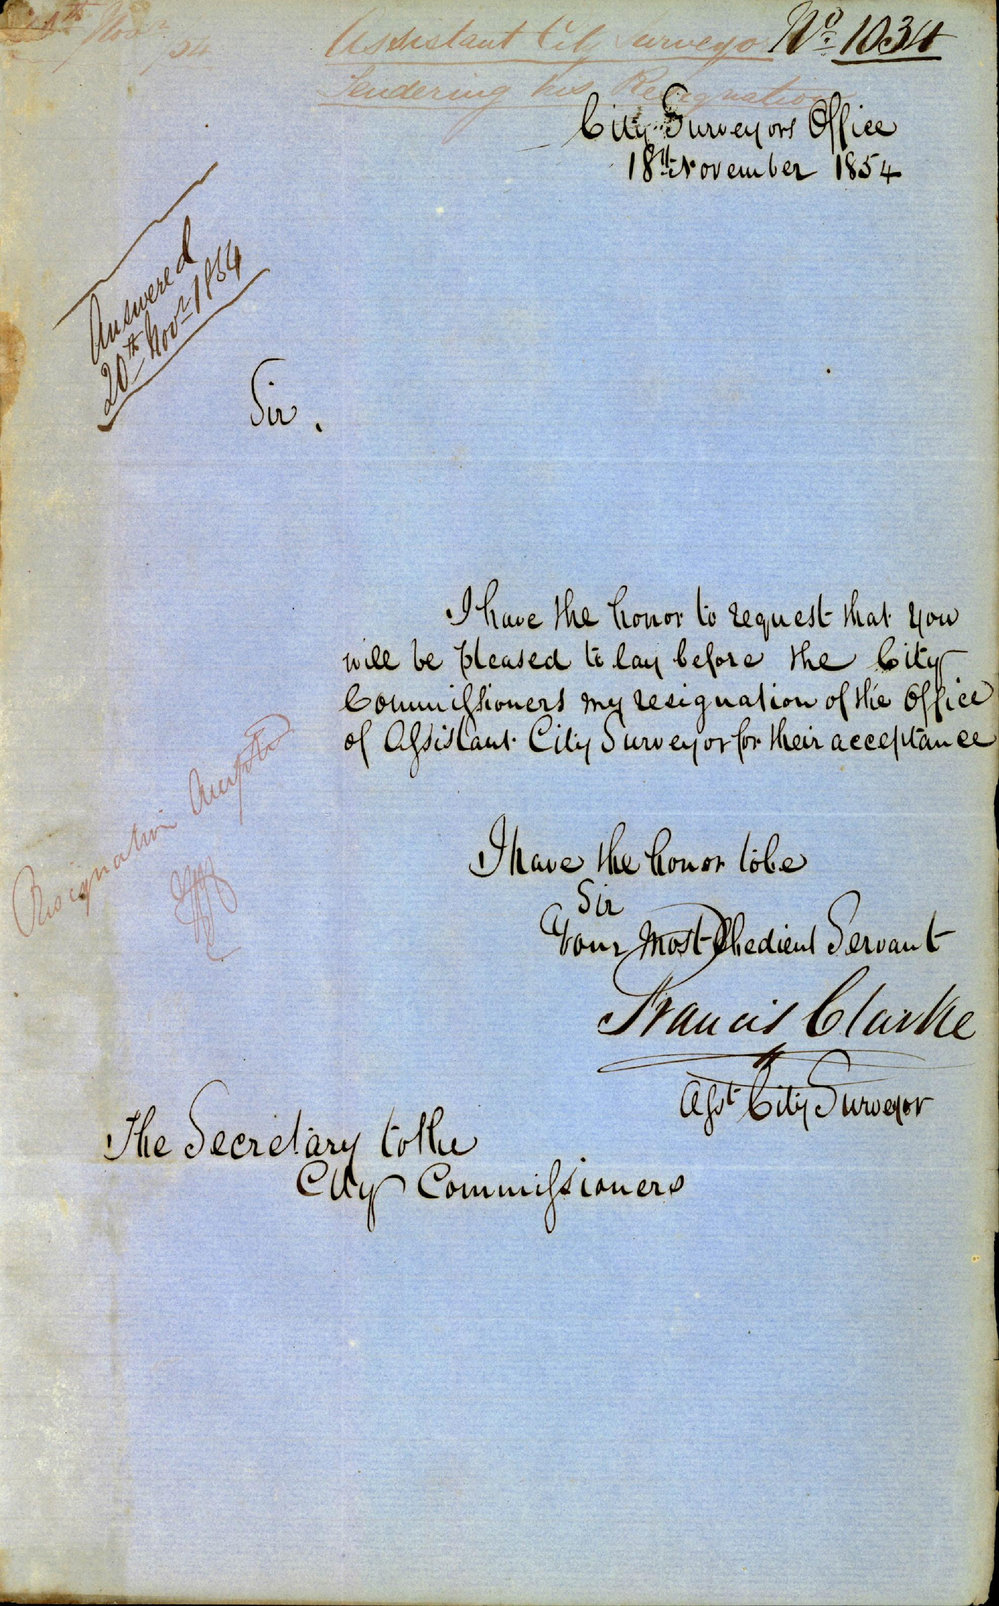 Nov<sup>r</sup> 54
Assistant City Surveyor
Tendering his Resignation
No. 1034
City Surveyors Office
18th November 1854
Answered
20th Novr 1854
Sir.
I have the honor to request that you
will be pleased to lay before the City
Commissioners my resignation of the Office
of Assistant City Surveyor for their acceptance
Resignation Accepted
I have the honor to be
Sir
Your Most Obedient Servant
Francis Clarke
Asst City Surveyor
The Secretary to the
City Commissioners